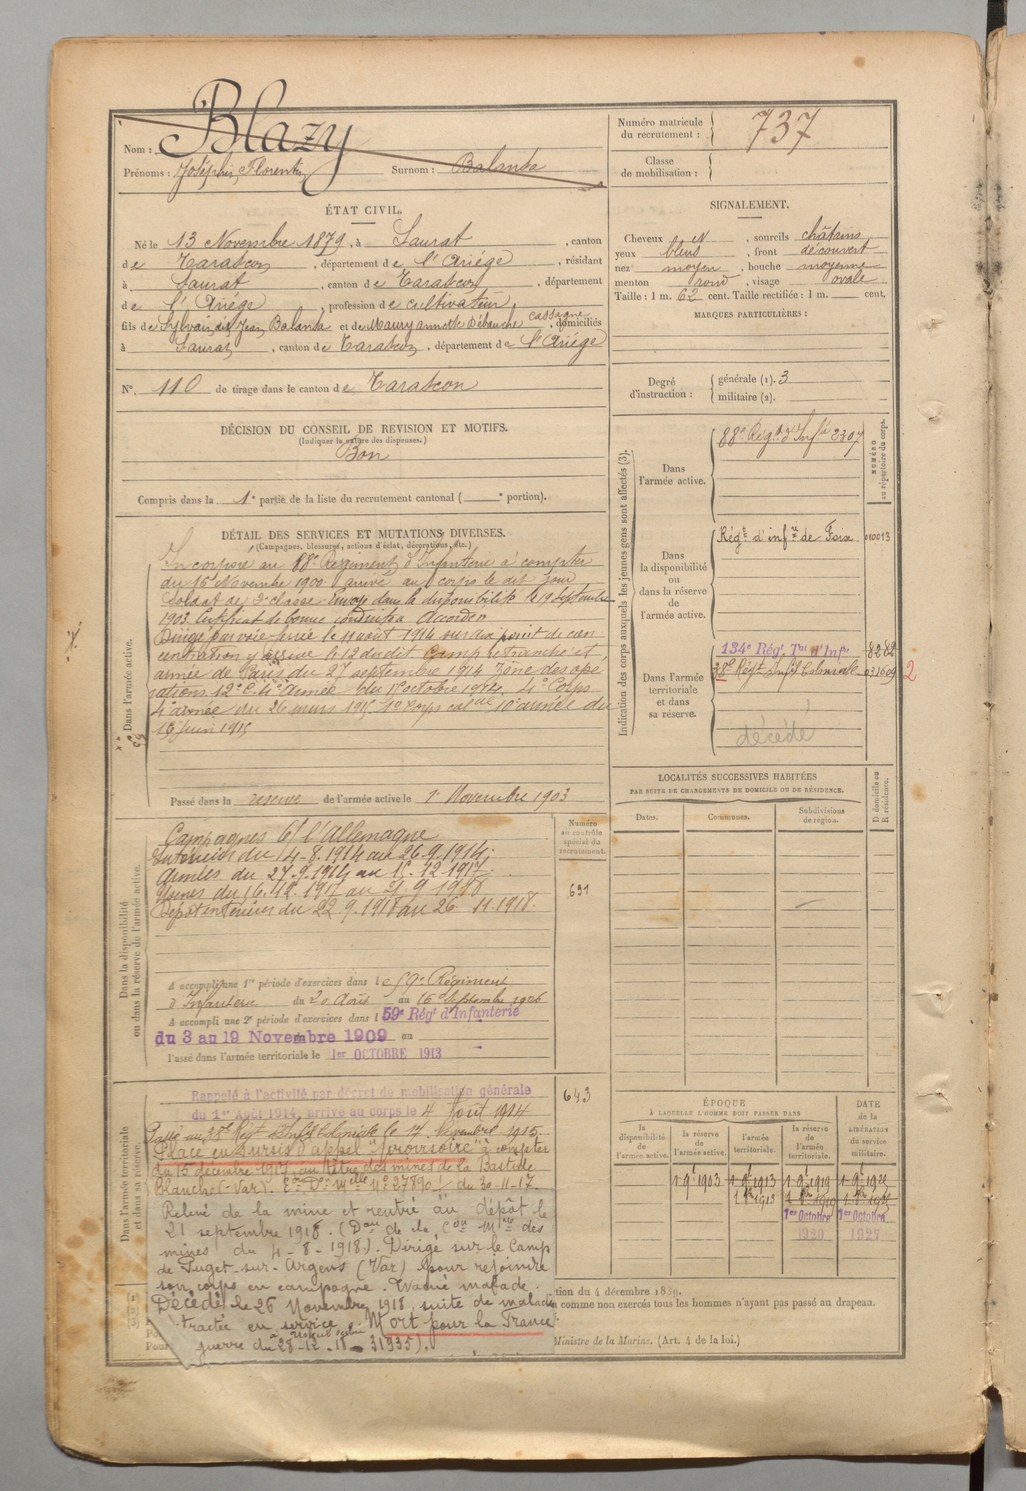 Nom : Blazy
Prénoms : Joseph, Florentin Surnom : Balanda
Numéro matricule du recrutement : 737
Classe de mobilisation :
ÉTAT CIVIL.
Né le 13 Novembre 1879, à Saurat, canton
de Tarascon, département de l'Ariège, résidant
à Saurat, canton de Tarascon, département
de l'Ariège, profession de cultivateur,
fils de Sylvain, dit Jean, Balanda et de Maury annette Débauche Cassagne, domiciliés
à Saurat, canton de Tarascon, département de l'Ariège
N° 110 de tirage dans le canton de Tarascon
DÉCISION DU CONSEIL DE REVISION ET MOTIFS.
(Indiquer la nature des dispenses.)
Bon
Compris dans la 1e partie de la liste du recrutement cantonal ( e portion).
SIGNALEMENT.
Cheveux N, sourcils châtains
yeux bleus, front découvert
nez moyen, bouche moyenne
menton rond, visage ovale
Taille : 1 m. 62 cent. Taille rectifiée : 1 m. cent.
MARQUES PARTICULIÈRES :
Degré d'instruction : générale (1). 3
militaire (2).
DÉTAIL DES SERVICES ET MUTATIONS DIVERSES.
(Campagnes, blessures, actions d'éclat, décorations, etc.)
Dans l'armée active.
Incorporé au 88e Régiment d'Infanterie à compter
du 16 Novembre 1900 arrivé au corps le dit jour
Soldat de 2e classe Envoyé dans la disponibilité le 19 septembre
1903. Certificat de bonne conduite Accordé
Dirigé par voie ferrée le 11 août 1914 sur aux point de con
centration y arrive le 12 du dit Camp retranché et
armée de Paris du 27 septembre 1914 Zône des opé
rations 12e C. 4e Armée du 1er octobre 1914. 4e Corps
4e armée du 26 mars 1915 1er Corps cal 10e armée du
16 juin 1915
Passé dans la réserve de l'armée active le 1er Novembre 1903
Indication des corps auxquels les jeunes gens sont affectés (3).
NUMÉRO au répertoire du corps.
Dans l'armée active.
88e Régt d'Infie 2307
Dans la disponibilité ou dans la réserve de l'armée active.
Régt d'infie de Foix 010013
Dans l'armée territoriale et dans sa réserve.
134e Régt Tal d'Infie 8282
38e Régt Infie Coloniale 031609 2
décédé
Dans la disponibilité ou dans la réserve de l'armée active.
Campagnes Ct l'Allemagne
Intérieur du 4-8-1914 au 26.9.1914;
Armées du 27.9.1914 au 15.12.1917.
Mines du 16.12.1917 au 21.9.1918
Dépôt intérieur du 22.9.1918 au 26.11.1918.
Numéro au contrôle spécial du recrutement.
691
A accompli une 1re période d'exercices dans le 59e Régiment
d'Infanterie du 20 Août au 16 Septembre 1906
A accompli une 2e période d'exercices dans l 59e Régt d'Infanterie
du 3 au 19 Novembre 1909 au
Passé dans l'armée territoriale le 1er OCTOBRE 1913
LOCALITÉS SUCCESSIVES HABITÉES
PAR SUITE DE CHANGEMENTS DE DOMICILE OU DE RÉSIDENCE.
Dates.
Communes.
Subdivisions de région.
D. domicile ou R. résidence.
Dans l'armée territoriale et dans sa réserve.
643
Rappelé à l'activité par décret de mobilisation générale
du 1er Août 1914, arrivé au corps le 4 Août 1914
Passé au 38e Régt Infie Coloniale le 17 novembre 1915
Placé en sursis d'appel "provisoire" à compter
du 15 décembre 1917, au titre des mines de la Bastide
Blanche (-Var). N° 27890 / du 30-11-17
Relevé de la mine et rentré au dépôt le
21 septembre 1918 (Don de la Con Mre des
mines du 4-8-1918). Dirigé sur le Camp
de Puget-sur-Argens (Var) pour rejoindre
son corps en campagne. Évacué malade.
Décédé le 26 Novembre 1918, suite de maladie
tractée en service. Mort pour la France
guerre du 28-12-18 31935).
ÉPOQUE
À LAQUELLE L'HOMME DOIT PASSER DANS
la disponibilité de l'armée active.
la réserve de l'armée active.
l'armée territoriale.
la réserve de l'armée territoriale.
DATE de la LIBÉRATION du service militaire.
1 9r 1903 1 9r 1913 1 9r 1919 1 9r 1925
1er Octobre 1er Octobre
tion du 4 décembre 1889.
n comme non exercés tous les hommes n'ayant pas passé au drapeau.
Pour
Ministre de la Marine. (Art. 4 de la loi.)